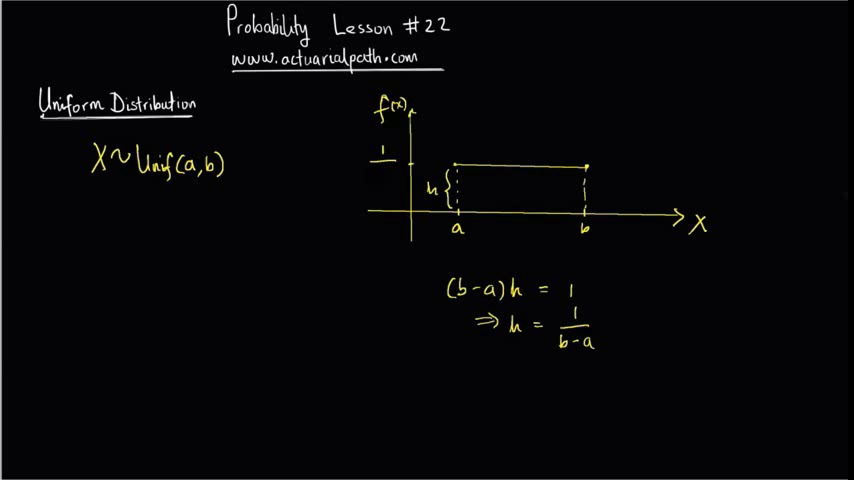 Probability Lesson #22
www.actuarialpath.com
Uniform Distribution
X~Unif(a,b)
f(x)
1
h{
a
b
X
(b-a)h = 1
⇒ h = 1/(b-a)